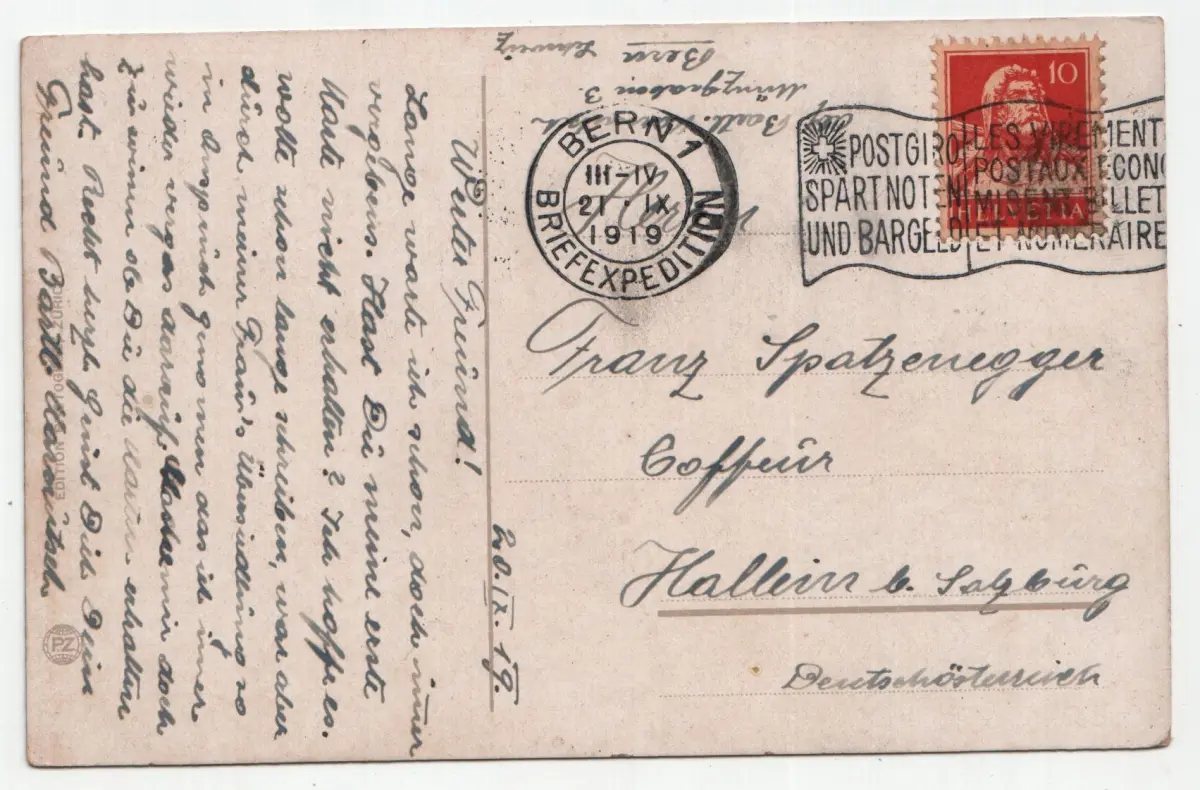 Bartl.
Münzgraben 3.
Bern Schweiz
BERN 1
III-IV
21·IX
1919
BRIEFEXPEDITION
POSTGIRO
SPART NOTEN
UND BARGELD
LES VIREMENT
POSTAUX ECONO
MISENT BILLET
ET NUMERAIRE
10
HELVETIA
Herrn
Franz Spatzenegger
Coffeur
Hallein b. Salzburg
Deutschösterreich
20.IX.19.
Werter Freund!
Lange warte ich schon, doch immer
vergebens. Hast Du meine erste
Karte nicht erhalten? Ich hoffe es.
wollte schon lange schreiben, war aber
durch meiner Frau's Übersiedlung so
in Anspruch genomen das ich imer
wieder vergas darauf. mir doch
zu wissen ob Du die Karte erhalten
hast. Recht herzl. Grüst Dich Dein
Freund Bartl.
EDITION PHOTOGLOB ZÜRICH
PZ